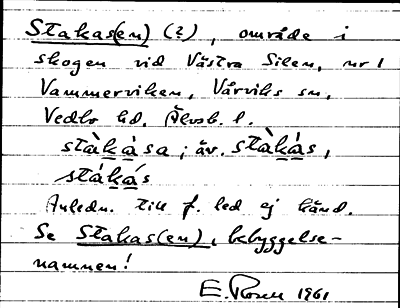 Stakas(en) (?), område i
skogen vid Västra Silen, nr 1
Vammerviken, Vårviks sn,
Vedbo hd, Älvsb. l.
stàkása; äv. stàkás,
stákás
Anledn. till f. led ej känd.
Se Stakas(en), bebyggelse-
namnen!
E. Rosell 1961